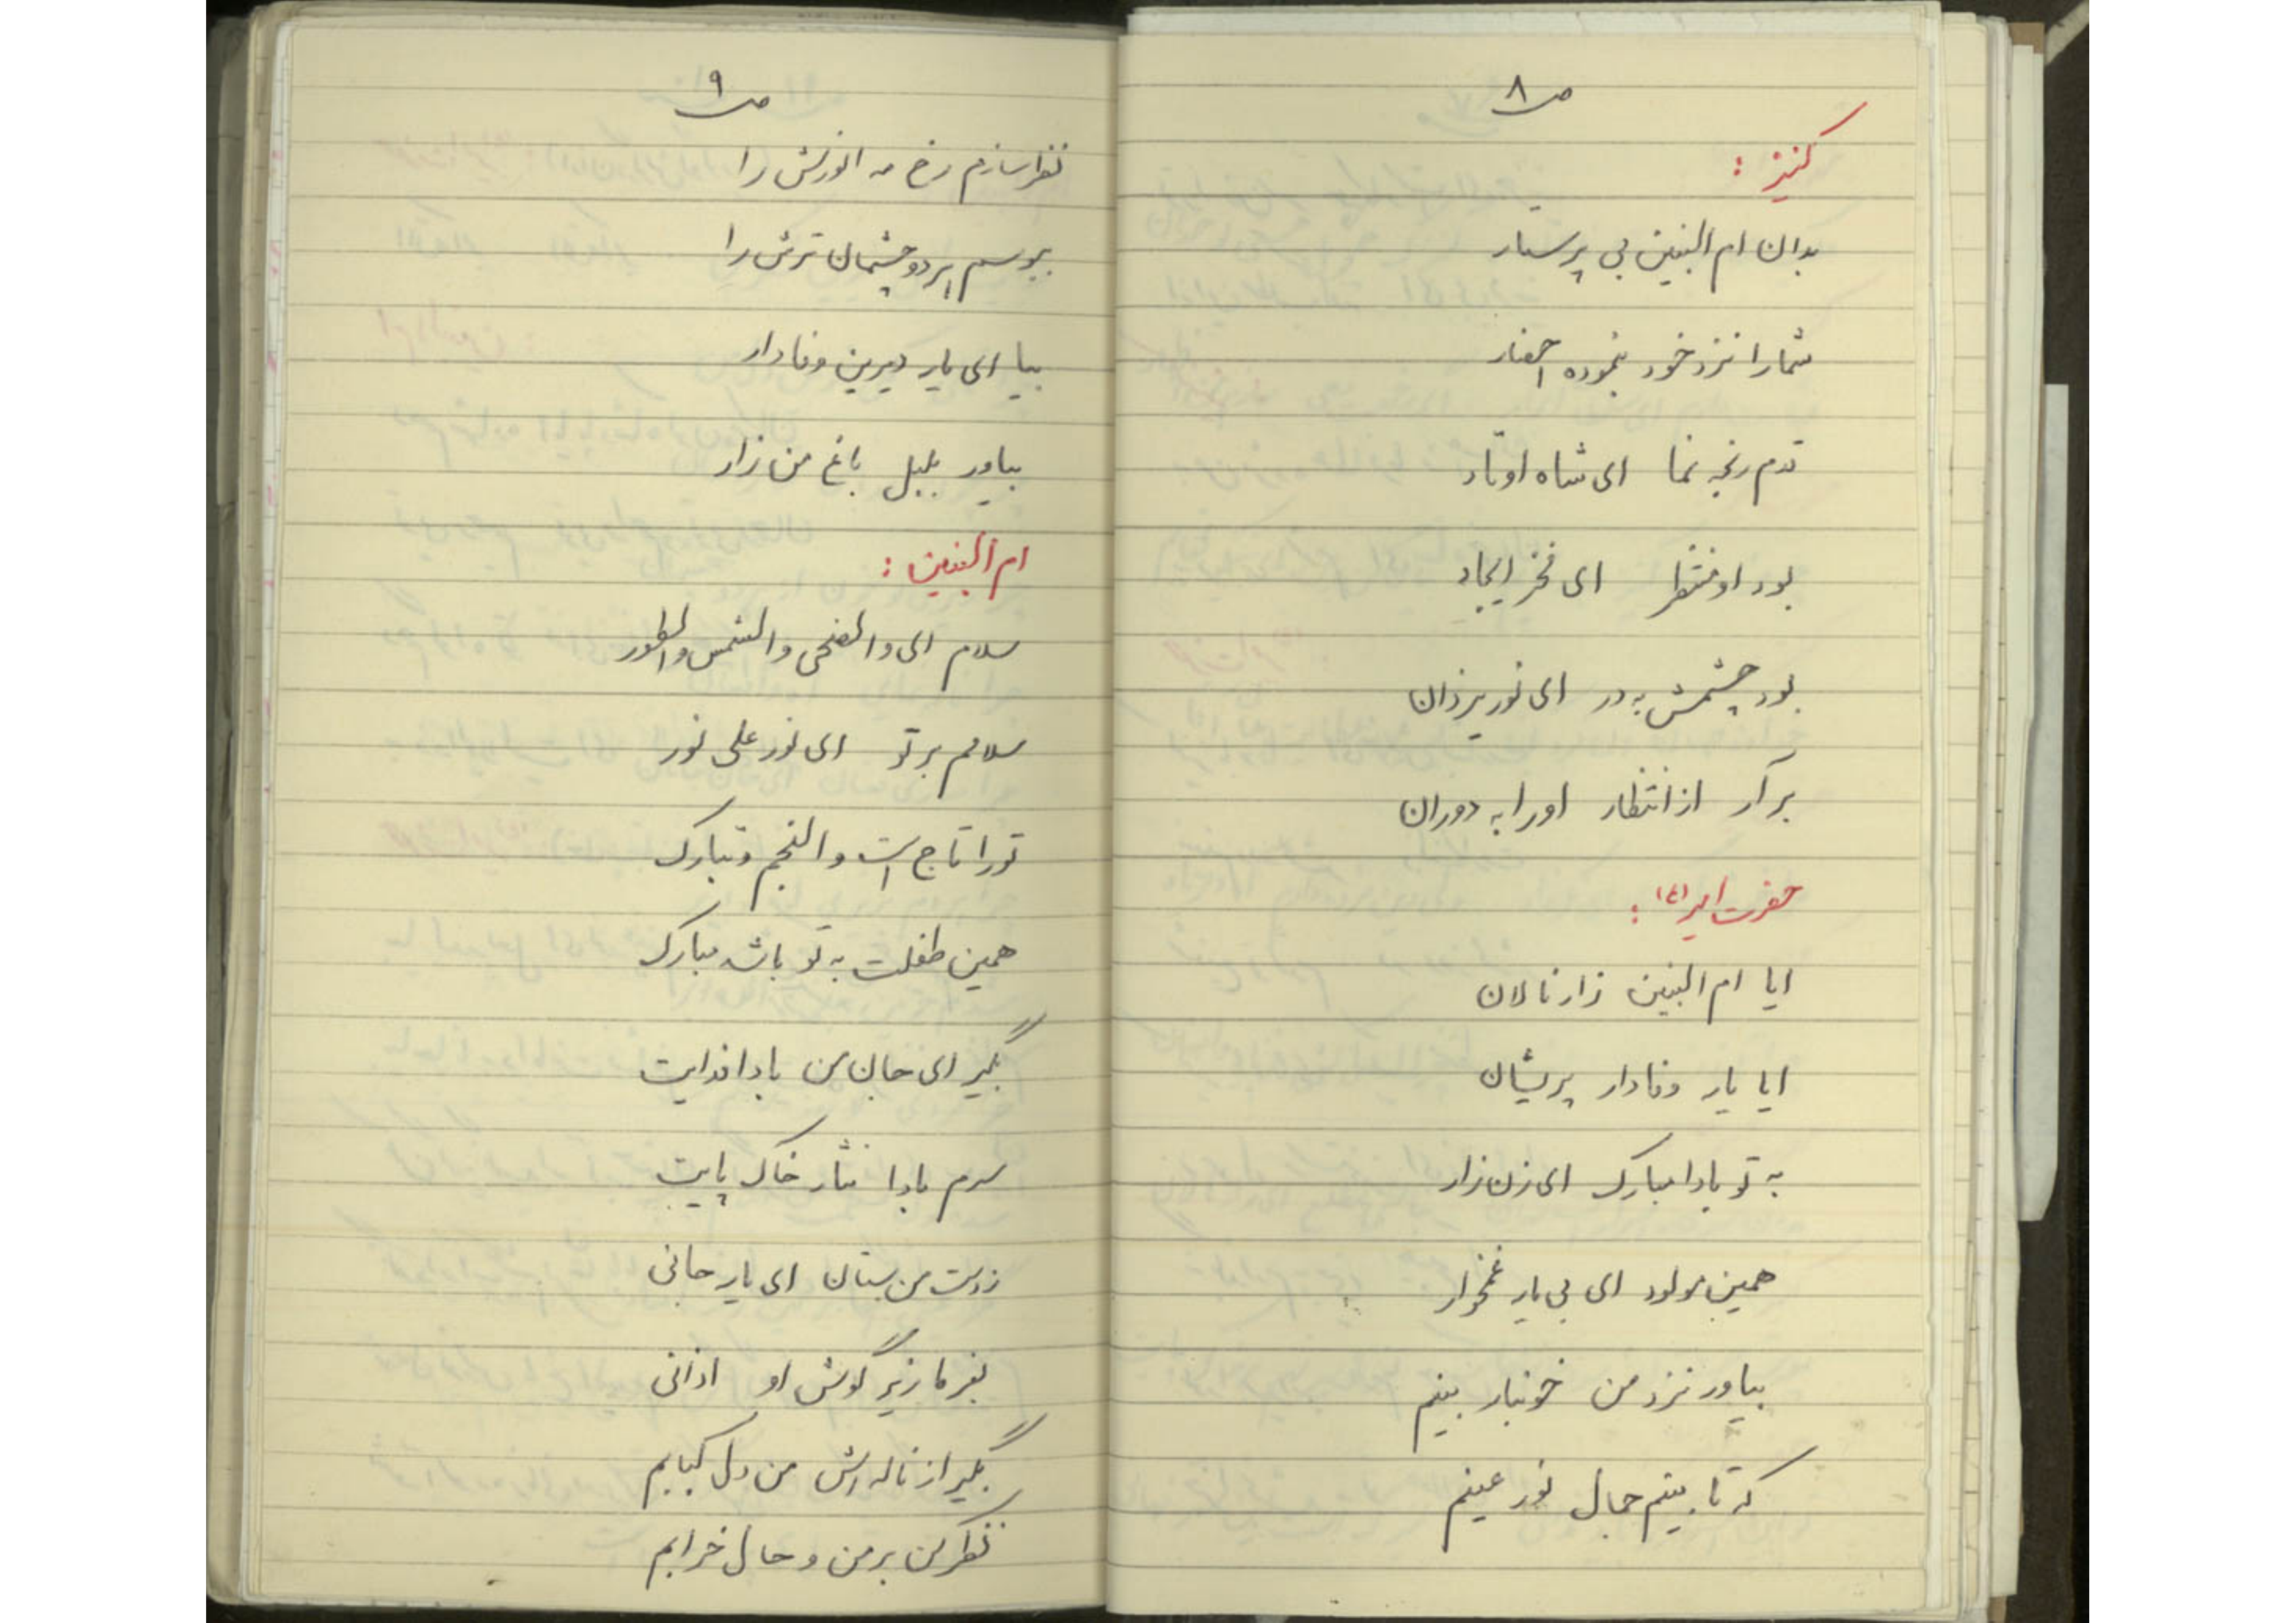 ص ۸
کنیز :
بدان ام البنین بی پرستار
شما را نزد خود بنموده احضار
قدم رنجه نما ای شاه اوتاد
بود او منتظر ای فخر ایجاد
بود چشمش به در ای نور یزدان
برآر از انتظار او را به دوران
حضرت امیر (ع) :
ایا ام البنین زار نالان
ایا یار وفادار پریشان
به تو بادا مبارک ای زن زار
همین مولود ای بی یار غمخوار
بیاور نزد من خونبار بینم
که تا بینم جمال نور عینم
ص ۹
نظر سازم رخ مه انورش را
ببوسم بر دو چشمان ترش را
بیا ای یار دیرین وفادار
بیاور بلبل باغ من زار
ام البنین :
سلام ای والضحی والشمس والطور
سلامم بر تو ای نور علی نور
تو را تاج است والنجم و تبارک
همین طفلت به تو باشد مبارک
بگیر ای جان من بادا فدایت
سرم بادا نثار خاک پایت
ز دست من بستان ای یار جانی
بفرما زیر گوش او اذانی
بگیر از ناله اش من دل کبابم
نظر کن بر من و حال خرابم